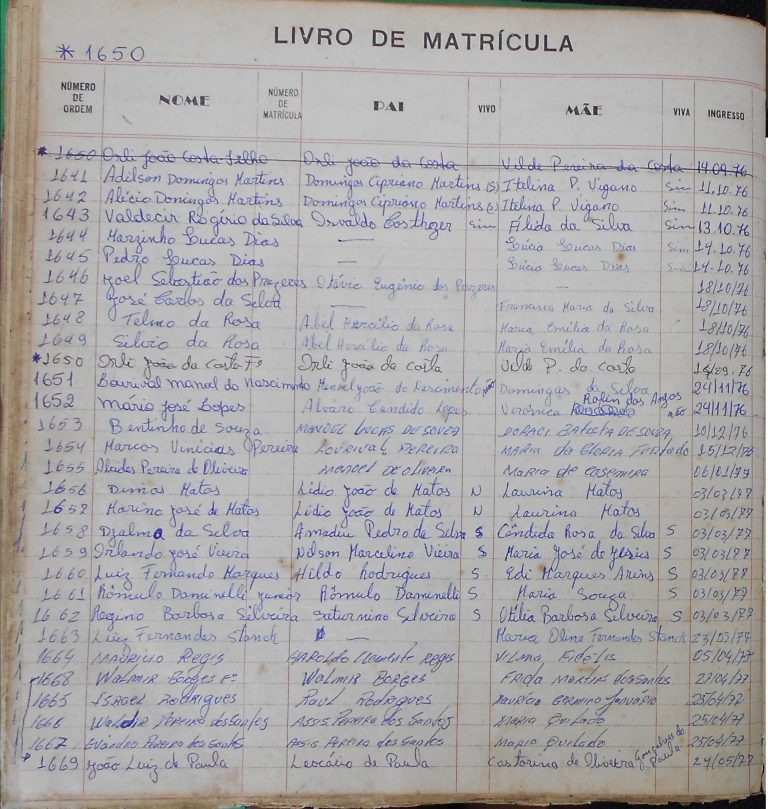 * 1650 LIVRO DE MATRÍCULA
NÚMERO DE ORDEM NOME NÚMERO DE MATRÍCULA PAI VIVO MÃE VIVA INGRESSO
* 1650 Orli João Costa Filho Orli João da Costa Vilde Pereira da Costa 14.09.76
1641 Adilson Domingos Martins Domingos Cipriano Martins (s) Itelina P. Vigano Sim 11.10.76
1642 Alécio Domingos Martins Domingos Cipriano Martins (s) Itelina P. Vigano Sim 11.10.76
1643 Valdecir Rogério da Silva Osvaldo Sim Élida da Silva Sim 13.10.76
1644 Marzinho Lucas Dias — Lúcia Lucas Dias Sim 14.10.76
1645 Pedro Lucas Dias — Lúcia Lucas Dias Sim 14.10.76
1646 Joel Sebastião dos Prazeres Otávio Eugênio dos Prazeres — 18/10/76
1647 José Carlos da Silva — Francisca Maria da Silva 18/10/76
1648 Telmo da Rosa Abel Hercílio da Rosa Maria Emília da Rosa 18/10/76
1649 Silvio da Rosa Abel Hercílio da Rosa Maria Emília da Rosa 18/10/76
* 1650 Orli João da Costa Fº Orli João da Costa Vilde P. da Costa 16/09.76
1651 Lourival Manoel do Nascimento Manoel João do Nascimento Domingas da Silva 24/11/76
1652 Mário José Lopes Alvaro Candido Lopes Verônica dos Anjos não 24/11/76
1653 Bentinho de Souza MANOEL LUCAS DE SOUZA DORACI BATISTA DE SOUZA 10/12/76
1654 Marcos Vinícius Pereira LOURIVAL PEREIRA MARIA da GLORIA FURTADO 15/12/76
1655 Alcides Pereira de Oliveira MANOEL DE OLIVEIRA MARIA de 06/01/77
1656 Dimas Matos Lídio João de Matos N Laurina Matos 03/03/77
1657 Marino José de Matos Lídio João de Matos N Laurina Matos 03/03/77
1658 Djalma da Silva Amadiu Pedro da Silva S Cândida Rosa da Silva S 03/03/77
1659 Orlando José Vieira Nilson Marcelino Vieira S Maria José de Jesus S 03/03/77
1660 Luiz Fernando Marques Hildo Rodrigues S Edi Marques Arins S 03/03/77
1661 Rômulo Daminelli Junior Rômulo Daminelli S Maria Souza S 03/03/77
1662 Regino Barbosa Silveira Saturnino Silveira S Otília Barbosa Silveira S 03/03/77
1663 Luiz Fernandes Stanck — Maria Olina Fernandes Stanck 23/03/77
1664 MAURICIO REGIS HAROLDO Clemente REGIS VILMA FIDÉLIS 05/04/77
1668 WALMIR BORGES Fº WALMIR BORGES FRIDA MARTINS DOS SANTOS 27/04/77
1665 ISABEL RODRIGUES RAUL RODRIGUES 25/04/77
1666 WALDIR PEREIRA dos SANTOS ASSIS PEREIRA dos SANTOS MARIA 25/04/77
1667 EVANDRO PEREIRA dos SANTOS ASSIS PEREIRA dos SANTOS MARIA 25/04/77
* 1669 João Luiz de Paula Leocádio de Paula Castorina de Oliveira Gonçalves de Paula 24/05/77